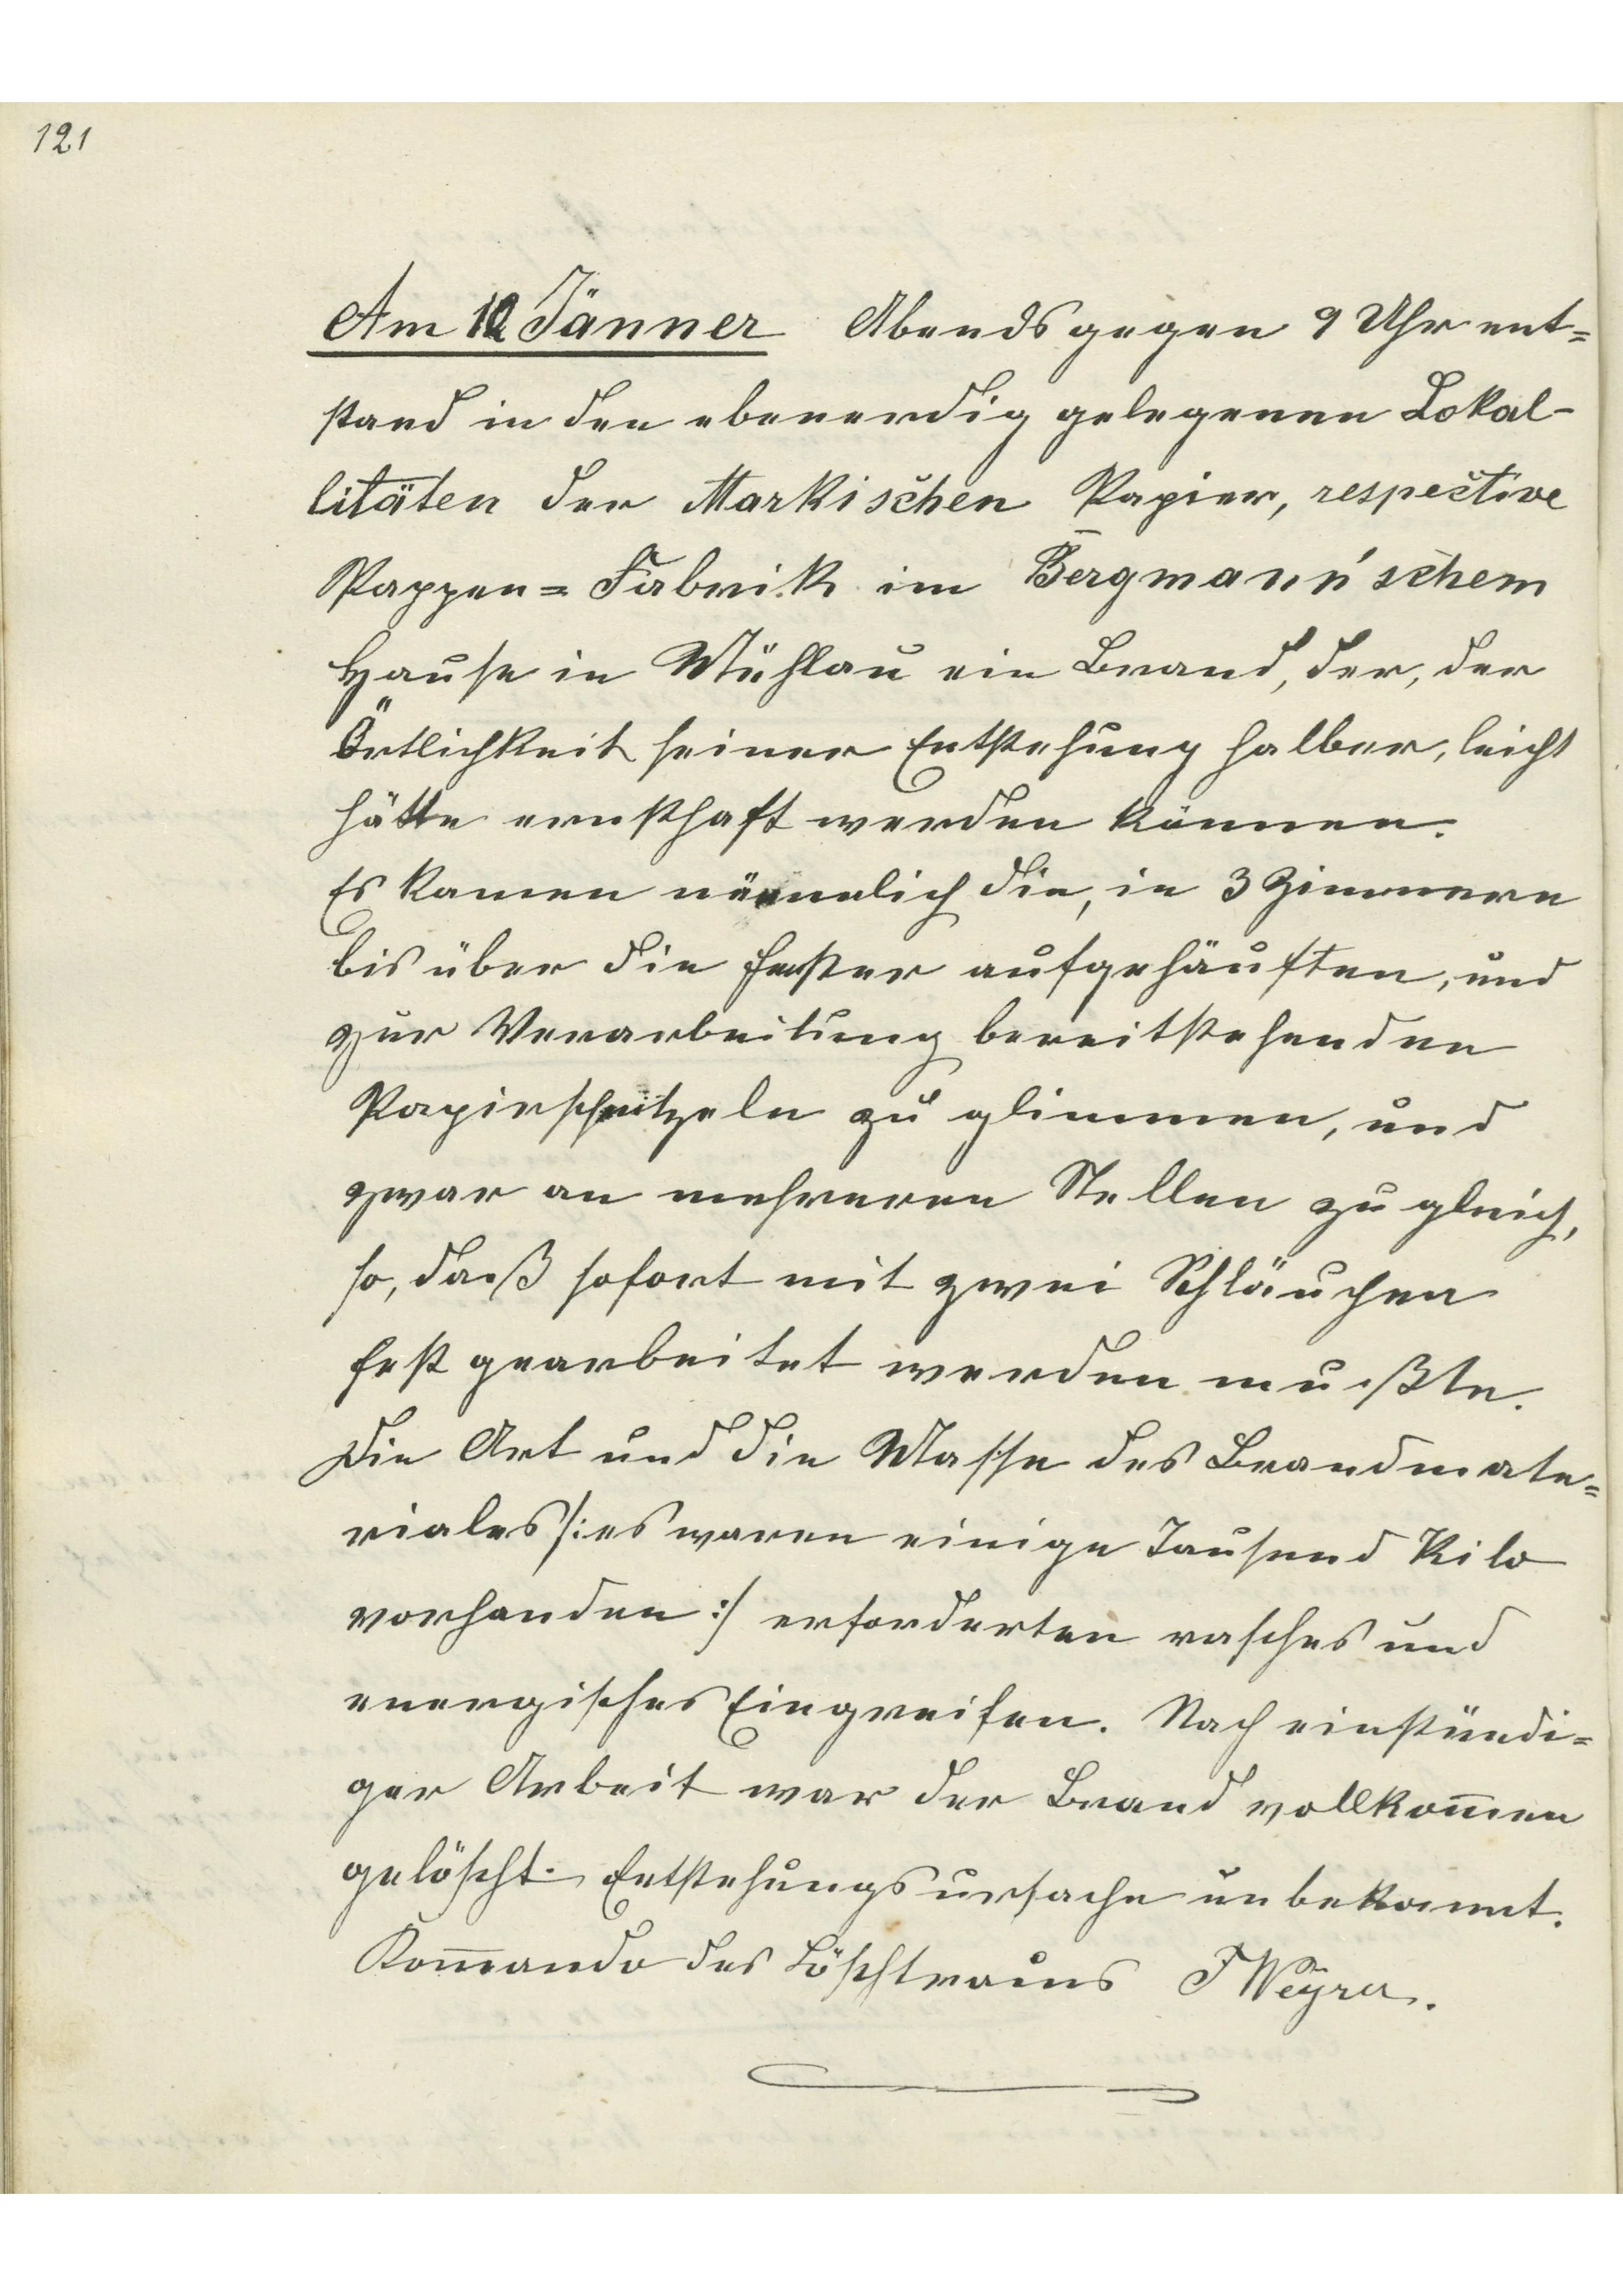 121
Am 12 Jänner Abends gegen 9 Uhr ent=
stand in den ebenerdig gelegenen Lokal-
litäten der Markischen Papier, respective
Pappen=Fabrik im Bergmann'schem
Hause in Mühlau ein Brand, der, der
Örtlichkeit seiner Entstehung halber, leicht
hätte ernsthaft werden können.
Es kamen nämlich die, in 3 Zimmern
bis über die Fenster aufgehäuften, und
zur Verarbeitung bereitstehenden
Papierschnitzeln zu glimmen, und
zwar an mehreren Stellen zu gleich,
so, daß sofort mit zwei Schläuchen
fest gearbeitet werden mußte.
Die Art und die Masse des Brandmate=
riales /: es waren einige Tausend Kilo
vorhanden :/ erforderten rasches und
energisches Eingreifen. Nach einstündi=
ger Arbeit war der Brand vollkom̄en
gelöscht. Entstehungsursache unbekannt.
Kom̄ando des Löschtrains